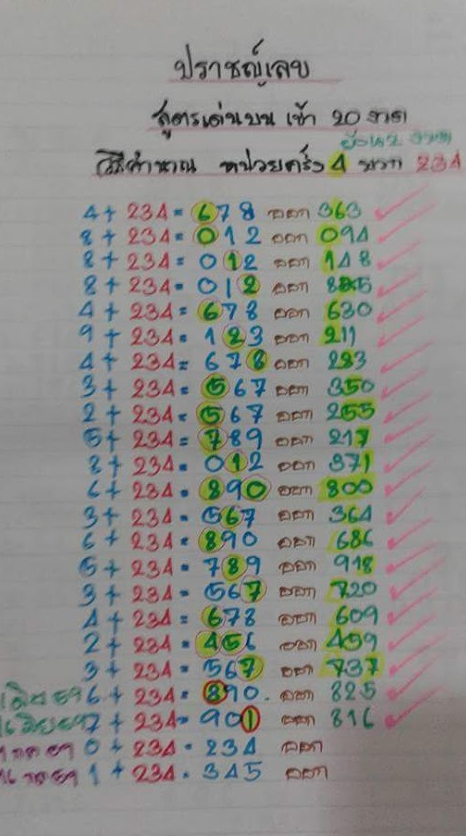 ปราชญ์เลข
สูตรเด่นบน เข้า 20 งวด
วิธีคำนวณ หน่วยครั้ง 4 บวก 234
4 + 234 = 678 ออก 363
8 + 234 = 012 ออก 094
8 + 234 = 012 ออก 148
8 + 234 = 012 ออก 885
4 + 234 = 678 ออก 630
9 + 234 = 123 ออก 211
4 + 234 = 678 ออก 283
3 + 234 = 567 ออก 350
2 + 234 = 567 ออก 255
5 + 234 = 789 ออก 217
8 + 234 = 012 ออก 371
6 + 234 = 890 ออก 800
3 + 234 = 567 ออก 364
6 + 234 = 890 ออก 686
5 + 234 = 789 ออก 918
3 + 234 = 567 ออก 720
4 + 234 = 678 ออก 609
2 + 234 = 456 ออก 459
3 + 234 = 567 ออก 737
6 + 234 = 890 . ออก 825
7 + 234 = 901 ออก 816
0 + 234 = 234 ออก
1 + 234 = 345 ออก